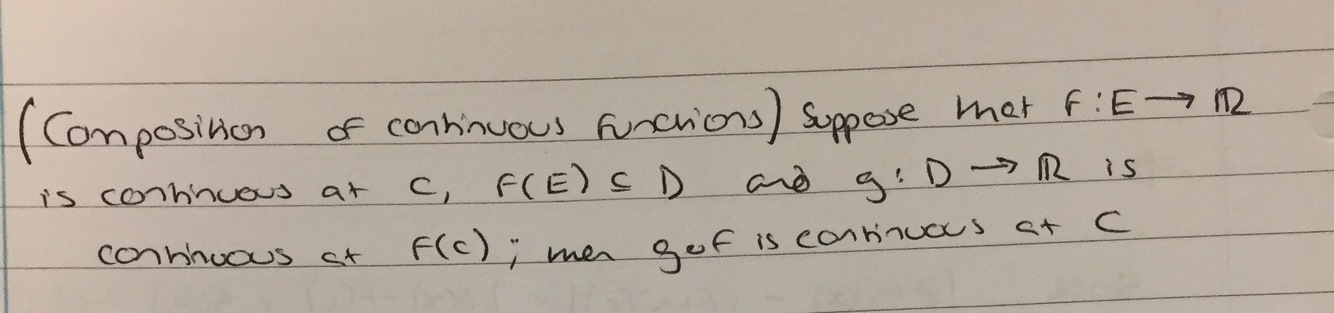 (Composition of continuous functions) Suppose that f : E → ℝ
is continuous at c, f(E) ⊆ D and g : D → ℝ is
continuous at f(c) ; then g∘f is continuous at c